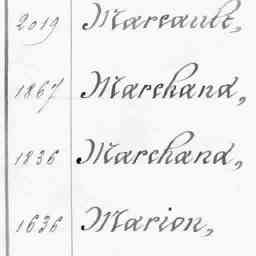 2019 Marcault,
1867 Marchand,
1836 Marchand,
1636 Marion,